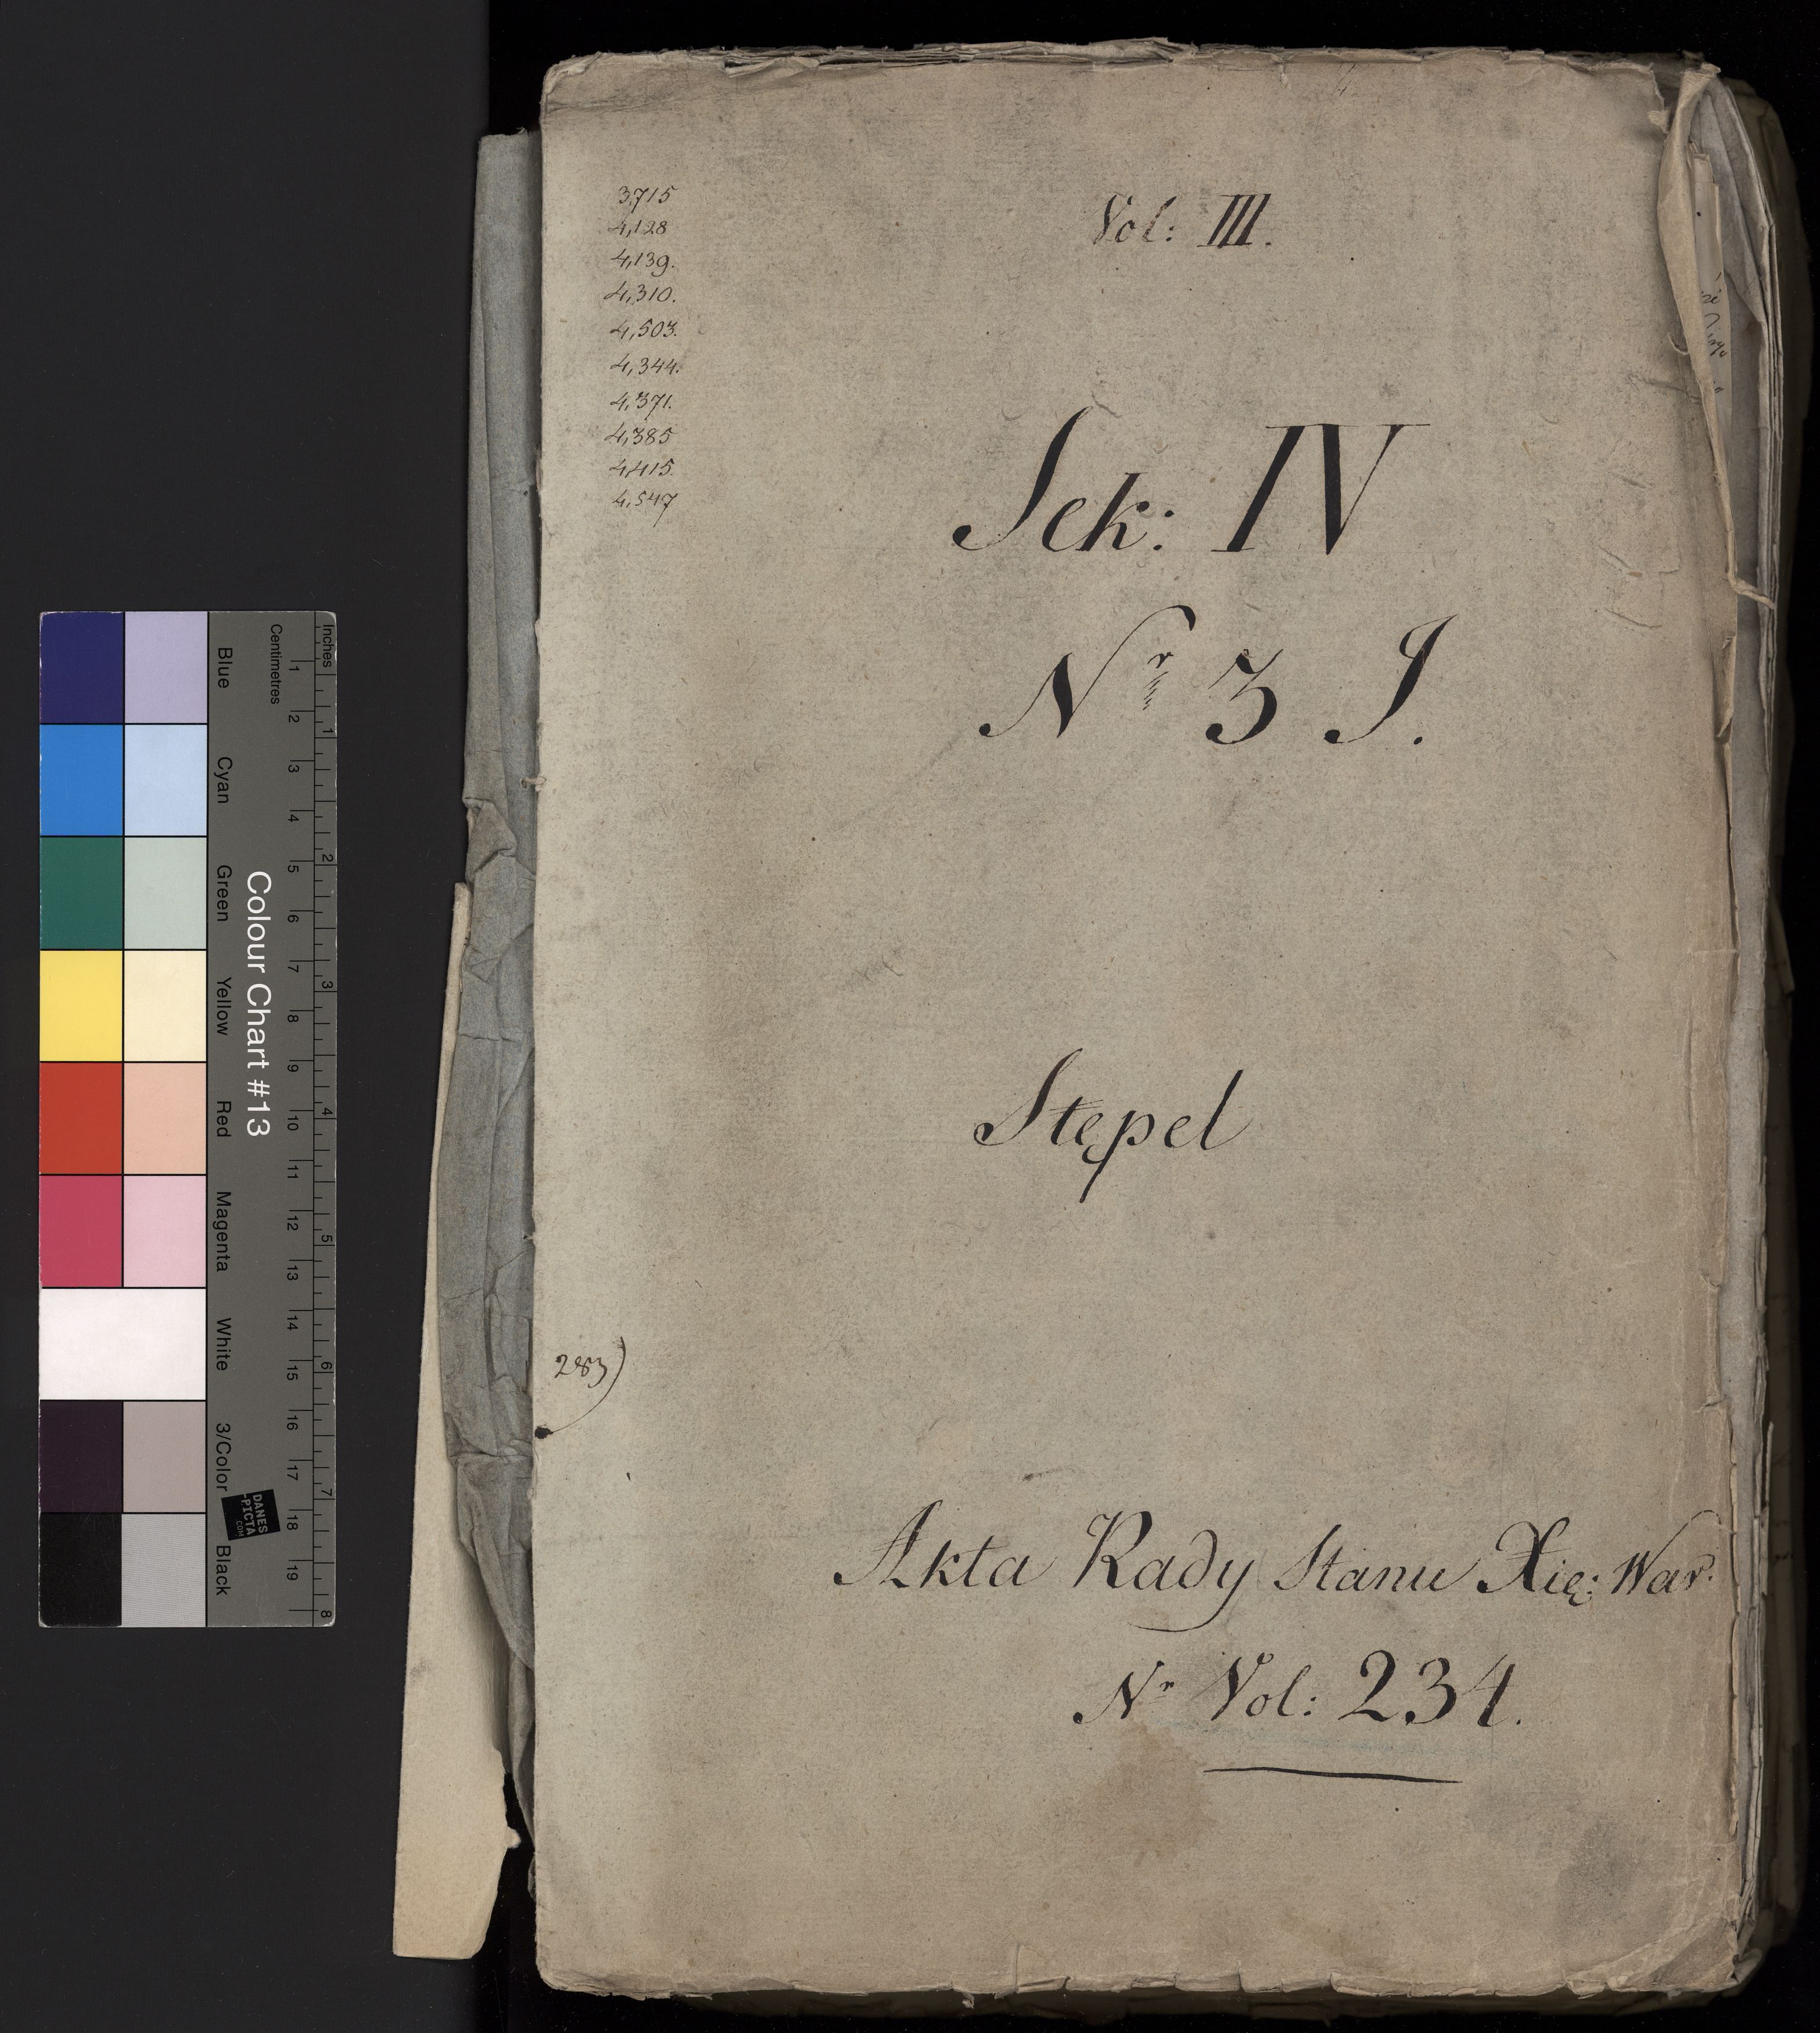 3,715
4,128
4,139.
4,310.
4,503.
4,344.
4,371.
4,385
4,415.
4,547
Vol: III.
Sek: IV
Nr 3 J.
Stępel
283)
Akta Rady Stanu Xię: War.
Nr Vol: 234.
Inches
Centimetres
1 2 3 4 5 6 7 8 9 10 11 12 13 14 15 16 17 18 19
1 2 3 4 5 6 7 8
Colour Chart #13
Blue
Cyan
Green
Yellow
Red
Magenta
White
3/Color
Black
DANES
-PICTA
.COM